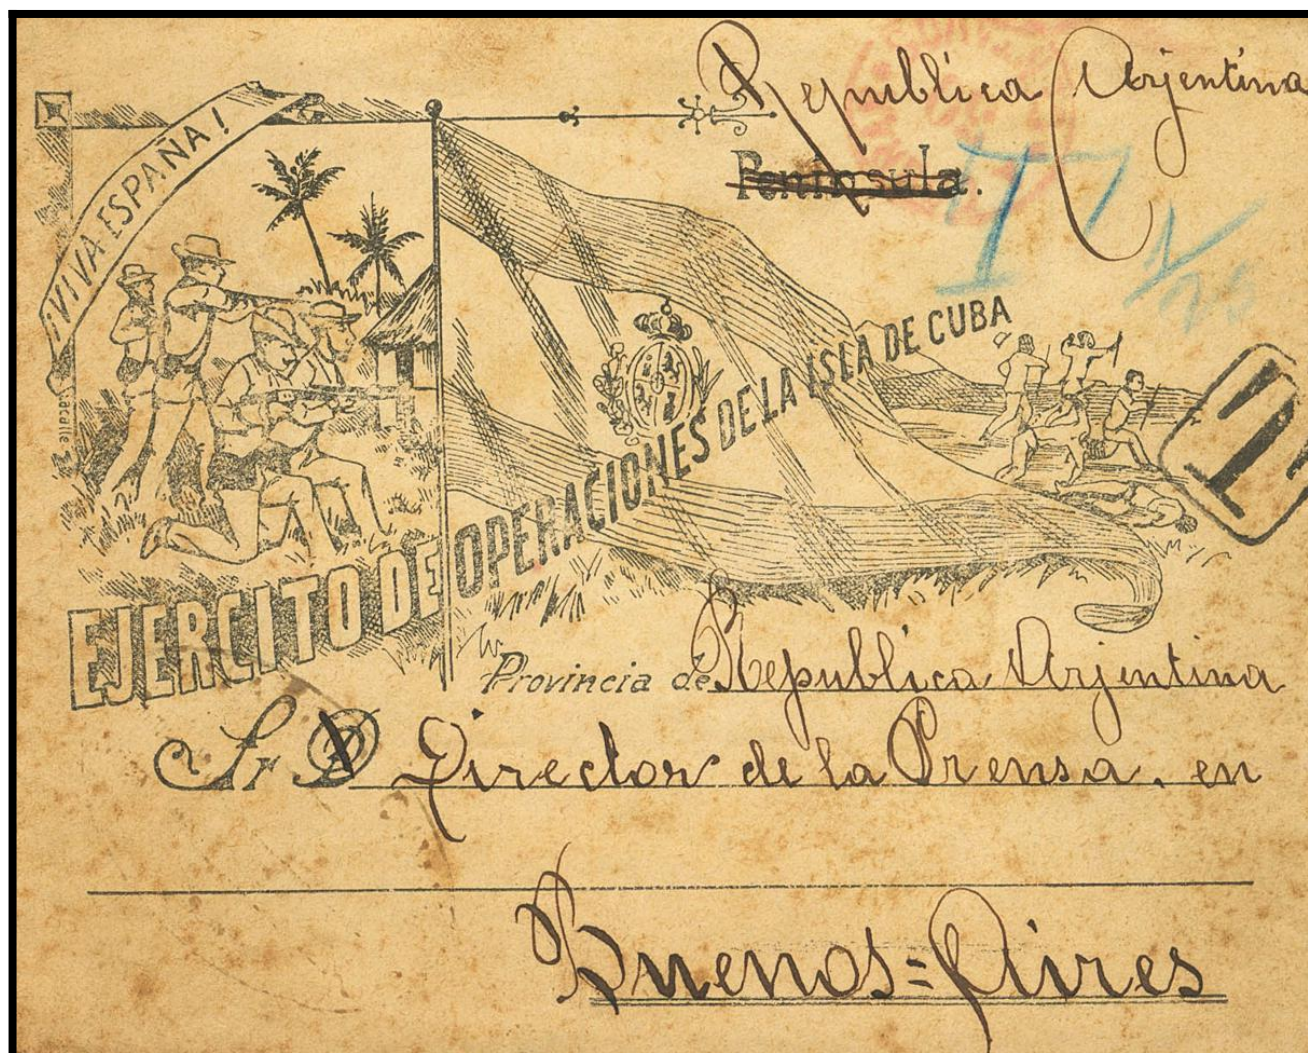 Republica Arjentina
Península.
¡VIVA ESPAÑA!
EJERCITO DE OPERACIONES DE LA ISLA DE CUBA
T
Provincia de Republica Arjentina
Sr D Director de la Prensa. en
Buenos=Aires